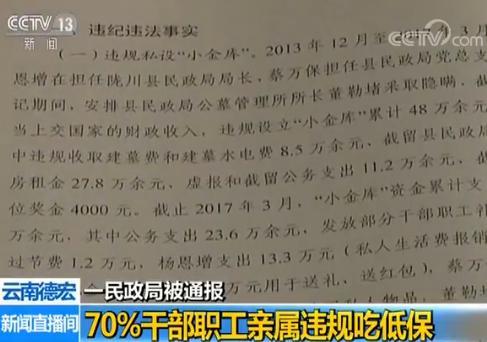 CCTV 13
新闻
CCTV.com
、违纪违法事实
（一）违规私设“小金库”。2013 年 12 月至 3 月
恩增在担任陇川县民政局局长，蔡万保担任县民政局党总支
记期间，安排县民政局公墓管理所所长董勒堵采取隐瞒、截
当上交国家的财政收入，违规设立“小金库”累计 48 万余元
中违规收取建墓费和建墓水电费 8.5 万余元、截留县民政
房租金 27.8 万余元、虚报和截留公务支出 11.2 万余元、截
位奖金 4000 元。截止 2017 年 3 月，“小金库”资金累计支
万余元，其中公务支出 23.6 万余元，发放部分干部职工补
过节费 1.2 万元，杨恩增支出 13.3 万元（私人生活费报销
万元用于送礼、送红包），蔡万
董勒
云南德宏
一民政局被通报
新闻直播间
70%干部职工亲属违规吃低保